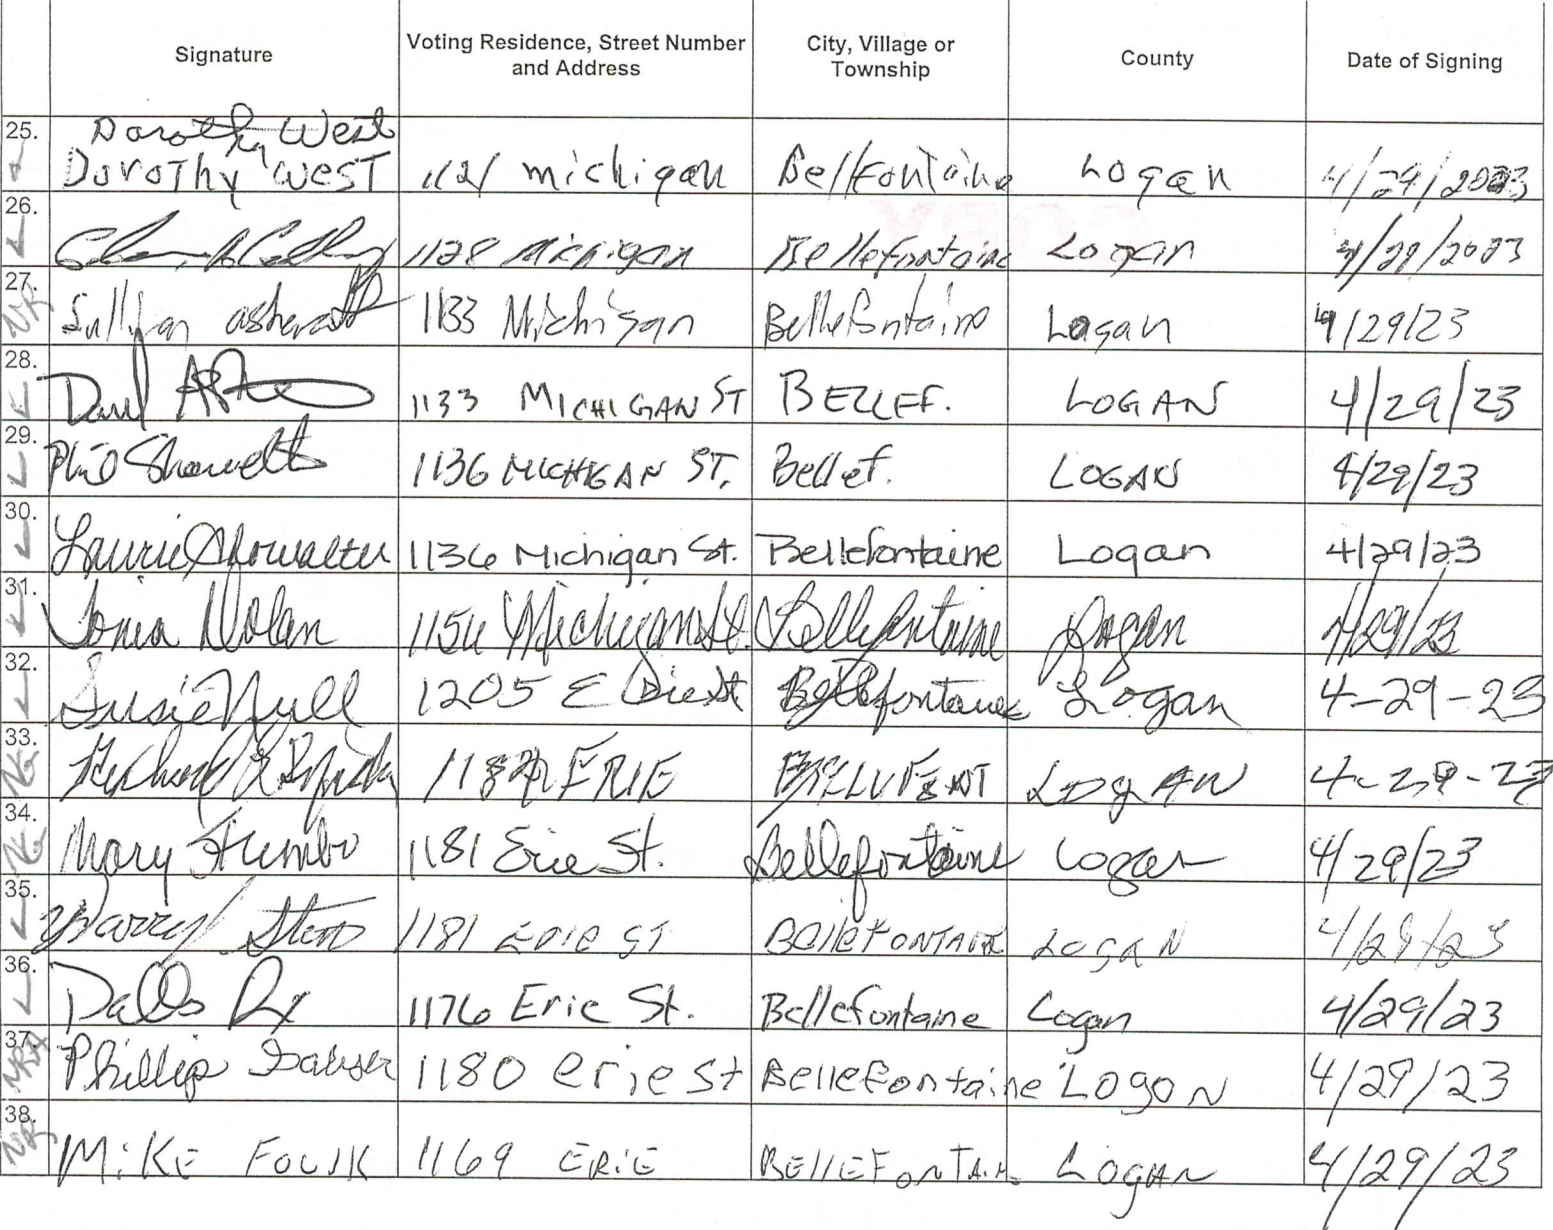 Signature Voting Residence, Street Number and Address City, Village or Township County Date of Signing
25. Dorothy West
Dorothy West 1121 michigan Bellfontaine Logan 4/29/2023
26. 1128 Michigan Bellefontaine Logan 4/29/2023
27. 1133 Michigan Bellefontaine Logan 4/29/23
28. 1133 MICHIGAN ST BELLEF. LOGAN 4/29/23
29. Phil Showalter 1136 MICHIGAN ST. Bellef. LOGAN 4/29/23
30. Laurie Showalter 1136 Michigan St. Bellefontaine Logan 4/29/23
31. Tonia Nolan Michigan St. Bellefontaine Logan 4/29/23
32. Susie Null 1205 E Bellefontaine Logan 4-29-23
33. ERIE LOGAN 4-29-23
34. Mary Stumbo 1181 Erie St. Bellefontaine Logan 4/29/23
35. 1181 ERIE ST BellEFONTAINE LOGAN 4/29/23
36. 1176 Erie St. Bellefontaine Logan 4/29/23
37. Phillip 1180 erie st Bellefontaine LOGON 4/29/23
38. MiKE FOULK 1169 ERiE BEllEFONTAiN LOGAN 4/29/23